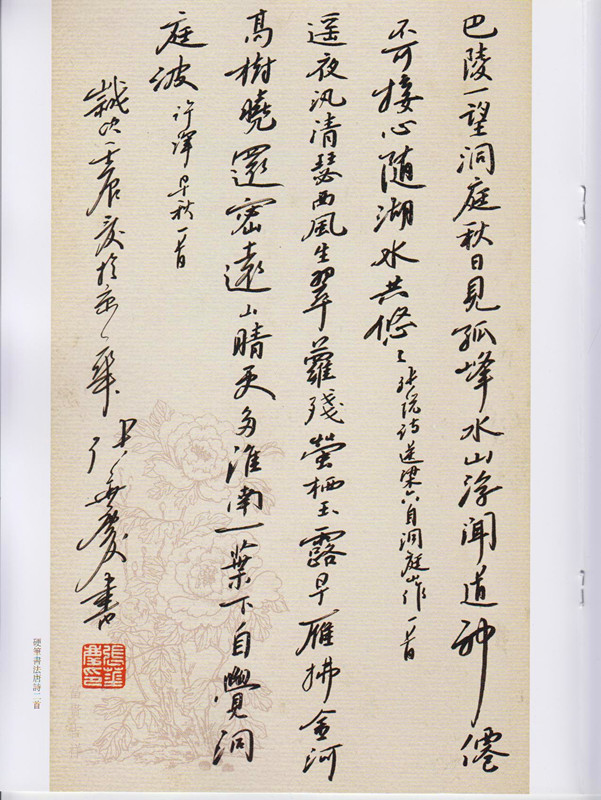 巴陵一望洞庭秋日見孤峰水山浮聞道神僊
不可接心随湖水共悠〻张说诗送梁六自洞庭山作一首
遥夜汎清瑟西風生翠蘿殘螢栖玉露早雁拂金河
高樹曉還密遠山晴更多淮南一葉下自覺洞
庭波 许渾早秋一首
歲次壬辰夏於京華 张華慶書
張華慶印
硬筆書法唐詩二首